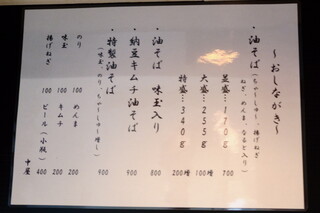 ～おしながき～
・油そば(ちゃーしゅー、揚げねぎ
ねぎ、めんま、なると入り)
並盛…170g 700
大盛…255g 100増
特盛…340g 200増
・油そば 味玉入り 800
・納豆キムチ油そば 900
・特製油そば 900
(味玉、のり、ちゃーしゅー増し)
のり 100 めんま 200
味玉 100 キムチ 200
揚げねぎ 100 ビール(小瓶) 400